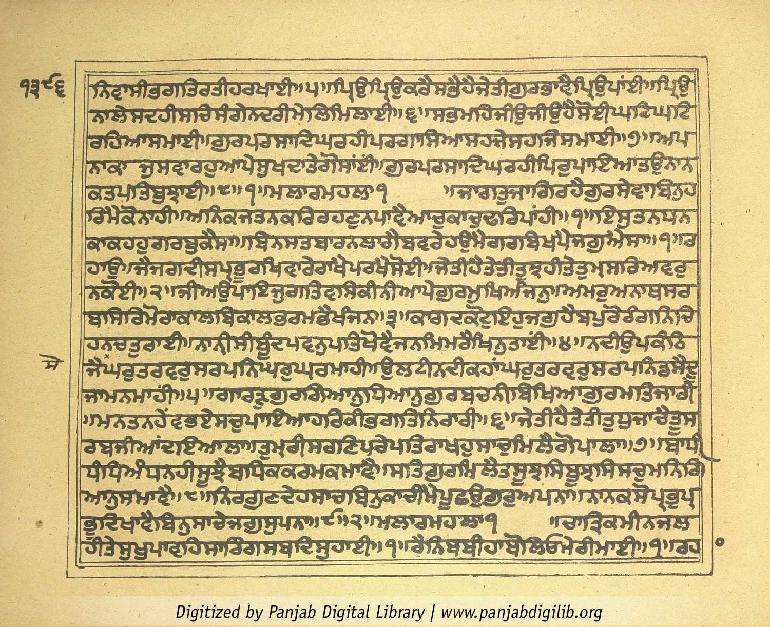 ੧੩੯੬
ਨਿਵਾਸੀਭਗਤਿਰਤੀਹਰਖਾਈ॥੫॥ਪ੍ਰਿਉਪ੍ਰਿਉਕਰੈਸਭੈਹੈਜੇਤੀਗੁਰਭਾਵੈਪ੍ਰਿਉਪਾਂਈ॥ਪ੍ਰਿਉ
ਨਾਲੇਸਦਹੀਸਾਚੇਸੰਗੇਨਦਰੀਮੇਲਿਮਿਲਾਈ॥੬॥ਸਭਮਹਿਜੀਉਜੀਉਹੈਸੋਈਘਟਿਘਟਿ
ਰਹਿਆਸਮਾਈ॥ਗੁਰਪਰਸਾਦਿਘਰਹੀਪਰਗਾਸਿਆਸਹਜੇਸਹਜਿਸਮਾਈ॥੭॥ਅਪ
ਨਾਕਾਜੁਸਵਾਰਹੁਆਪੇਸੁਖਦਾਤੇਗੋਸਾਂਈ॥ਗੁਰਪਰਸਾਦਿਘਰਹੀਪਿਰੁਪਾਇਆਤਉਨਾਨ
ਕਤਪਤਿਬੁਝਾਈ॥੮॥੧॥ਮਲਾਰਮਹਲਾ੧ ॥ਜਾਗਤੁਜਾਗਿਰਹੈਗੁਰਸੇਵਾਬਿਨੁਹ
ਰਿਮੈਕੋਨਾਹੀ॥ਅਨਿਕਜਤਨਕਰਿਰਹਣੁਨਪਾਵੈਆਚੁਕਾਚੁਢਰਿਪਾਂਹੀ॥੧॥ਇਸੁਤਨਧਨ
ਕਾਕਹਹੁਗਰਬੁਕੈਸਾ॥ਬਿਨਸਤਬਾਰਨਲਾਗੈਬਵਰੇਹਉਮੈਗਰਬਿਖਪੈਜਗੁਐਸਾ॥੧॥ਰ
ਹਾਉ॥ਜੈਜਗਦੀਸਪ੍ਰਭੂਰਖਿਵਾਰੇਰਾਖੈਪਰਖੈਸੋਈ॥ਜੇਤੀਹੈਤੇਤੀਤੁਝਹੀਤੇਤੁਮ੍ਹਸਰਿਅਵਰੁ
ਨਕੋਈ॥੨॥ਜੀਅਉਪਾਇਜੁਗਤਿਵਸਿਕੀਨੀਆਪੇਗੁਰਮੁਖਿਅੰਜਨੁ॥ਅਮਰੁਅਨਾਥਸਰ
ਬਸਿਰਿਮੋਰਾਕਾਲਬਿਕਾਲਭਰਮਭੈਖੰਜਨਾ॥੩॥ਕਾਗਦਕੋਟੁਇਹੁਜਗੁਹੈਬਪੁਰੋਰੰਗਨਿਚਿ
ਹਨਚਤੁਰਾਈ॥ਨਾਨੀ੍ਸੀਬੂੰਦਪਵਨੁਪਤਿਖੋਵੈਜਨਮਿਮਰੈਖਿਨੁਤਾਂਈ॥੪॥ਨਦੀਉਪਕੰਠਿ
ਸੇ
ਜੈਘਰੁਤਰਵਰੁਸਰਪਨਿਘਰੁਘਰਮਾਹੀ॥ਉਲਟੀਨਦੀਕਹਾਂਘਰੁਤਰਵਰੁਸਰਪਨਿਡਸੈਦੂ
ਜਾਮਨਮਾਹੀ॥੫॥ਗਾਰੜੁਗੁਰਗਿਆਨੁਧਿਆਨੁਗੁਰਬਚਨੀਬਿਖਿਆਗੁਰਮਤਿਜਾਰੀ
॥ਮਨਤਨਹੇਂਵਭਏਸਚੁਪਾਇਆਹਰਿਕੀਭਗਤਿਨਿਰਾਰੀ॥੬॥ਜੇਤੀਹੈਤੇਤੀਤੁਧੁਜਾਚੈਤੂਸ
ਰਬਜੀਆਂਦਇਆਲਾ॥ਤੁਮਰੀਸਰਣਿਪਰੇਪਤਿਰਾਖਹੁਸਾਚੁਮਿਲੈਗੋਪਾਲਾ॥੭॥ਬਾਧੀ
ਧੰਧਿਅੰਧਨਹੀਸੂਝੈਬਧਿਕਕਰਮਕਮਾਵੈ॥ਸਤਿਗੁਰਮਿਲੈਤਸੂਝਸਿਬੂਝਸਿਸਚੁਮਨਿਗਿ
ਆਨੁਸਮਾਵੈ॥੮॥ਨਿਰਗੁਣਦੇਹਸਾਚਬਿਨੁਕਾਚੀਮੈਪੂਛਉਗੁਰੁਅਪਨਾ॥ਨਾਨਕਸੋਪ੍ਰਭੁਪ੍ਰ
ਭੂਦਿਖਾਵੈਬਿਨੁਸਾਚੇਜਗੁਸੁਪਨਾ॥੯॥੨॥ਮਲਾਰਮਹਲਾ੧ ॥ਚਾਤ੍ਰਿਕਮੀਨਜਲ
ਹੀਤੇਸੁਖੁਪਾਵਹਿਸਾਰਿੰਗਸਬਦਿਸੁਹਾਈ॥੧॥ਰੈਨਿਬਬੀਹਾਬੋਲਿਓਮੇਰੀਮਾਈ॥੧॥ਰਹ
Digitized by Panjab Digital Library | www.panjabdigilib.org